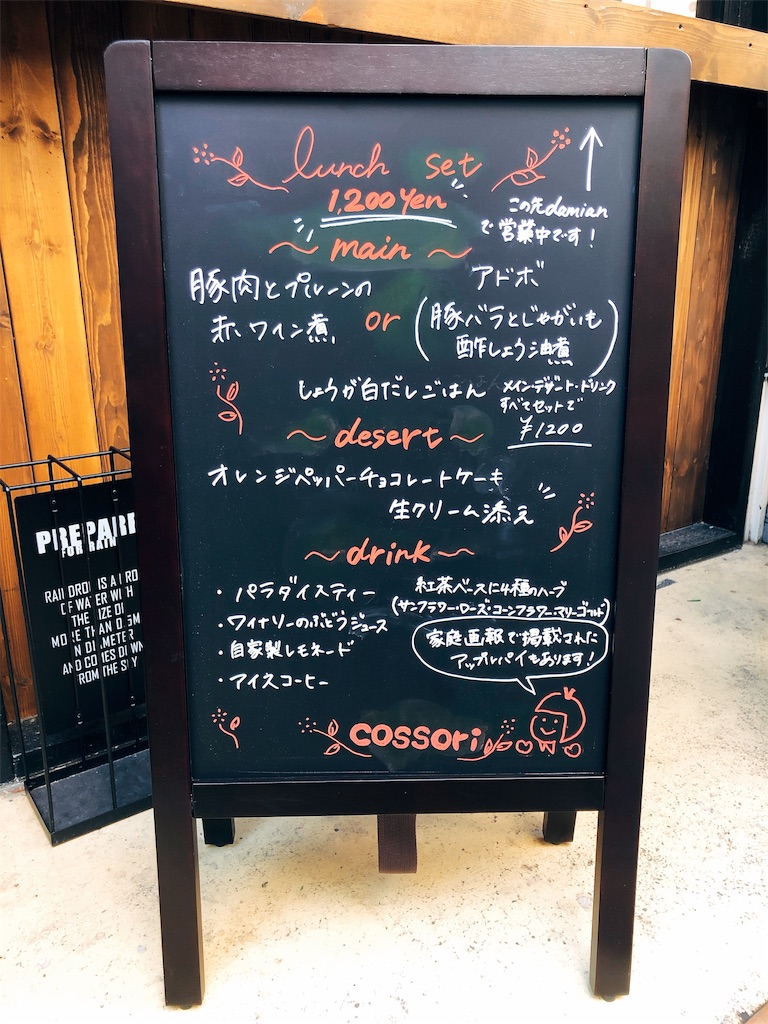 lunch set
1,200 Yen
この先damian
で営業中です！
~ main ~
豚肉とプルーンの
赤ワイン煮
or
アドボ
(豚バラとじゃがいも
酢しょうゆ煮)
しょうが白だしごはん
メイン・デザート・ドリンク
すべてセットで
¥1200
~ desert ~
オレンジペッパーチョコレートケーキ
生クリーム添え
~ drink ~
・パラダイスティー
紅茶ベースに4種のハーブ
(サンフラワー・ローズ・コーンフラワー・マリーゴールド)
・ワイナリーのぶどうジュース
・自家製レモネード
・アイスコーヒー
家庭画報で掲載された
アップルパイもあります！
cossori
PREPARE
FOR RAIN
RAINDROP IS A DROP
OF WATER WITH
THE SIZE OF
MORE THAN 0.5M
IN DIAMETER
AND COMES DOWN
FROM THE SKY